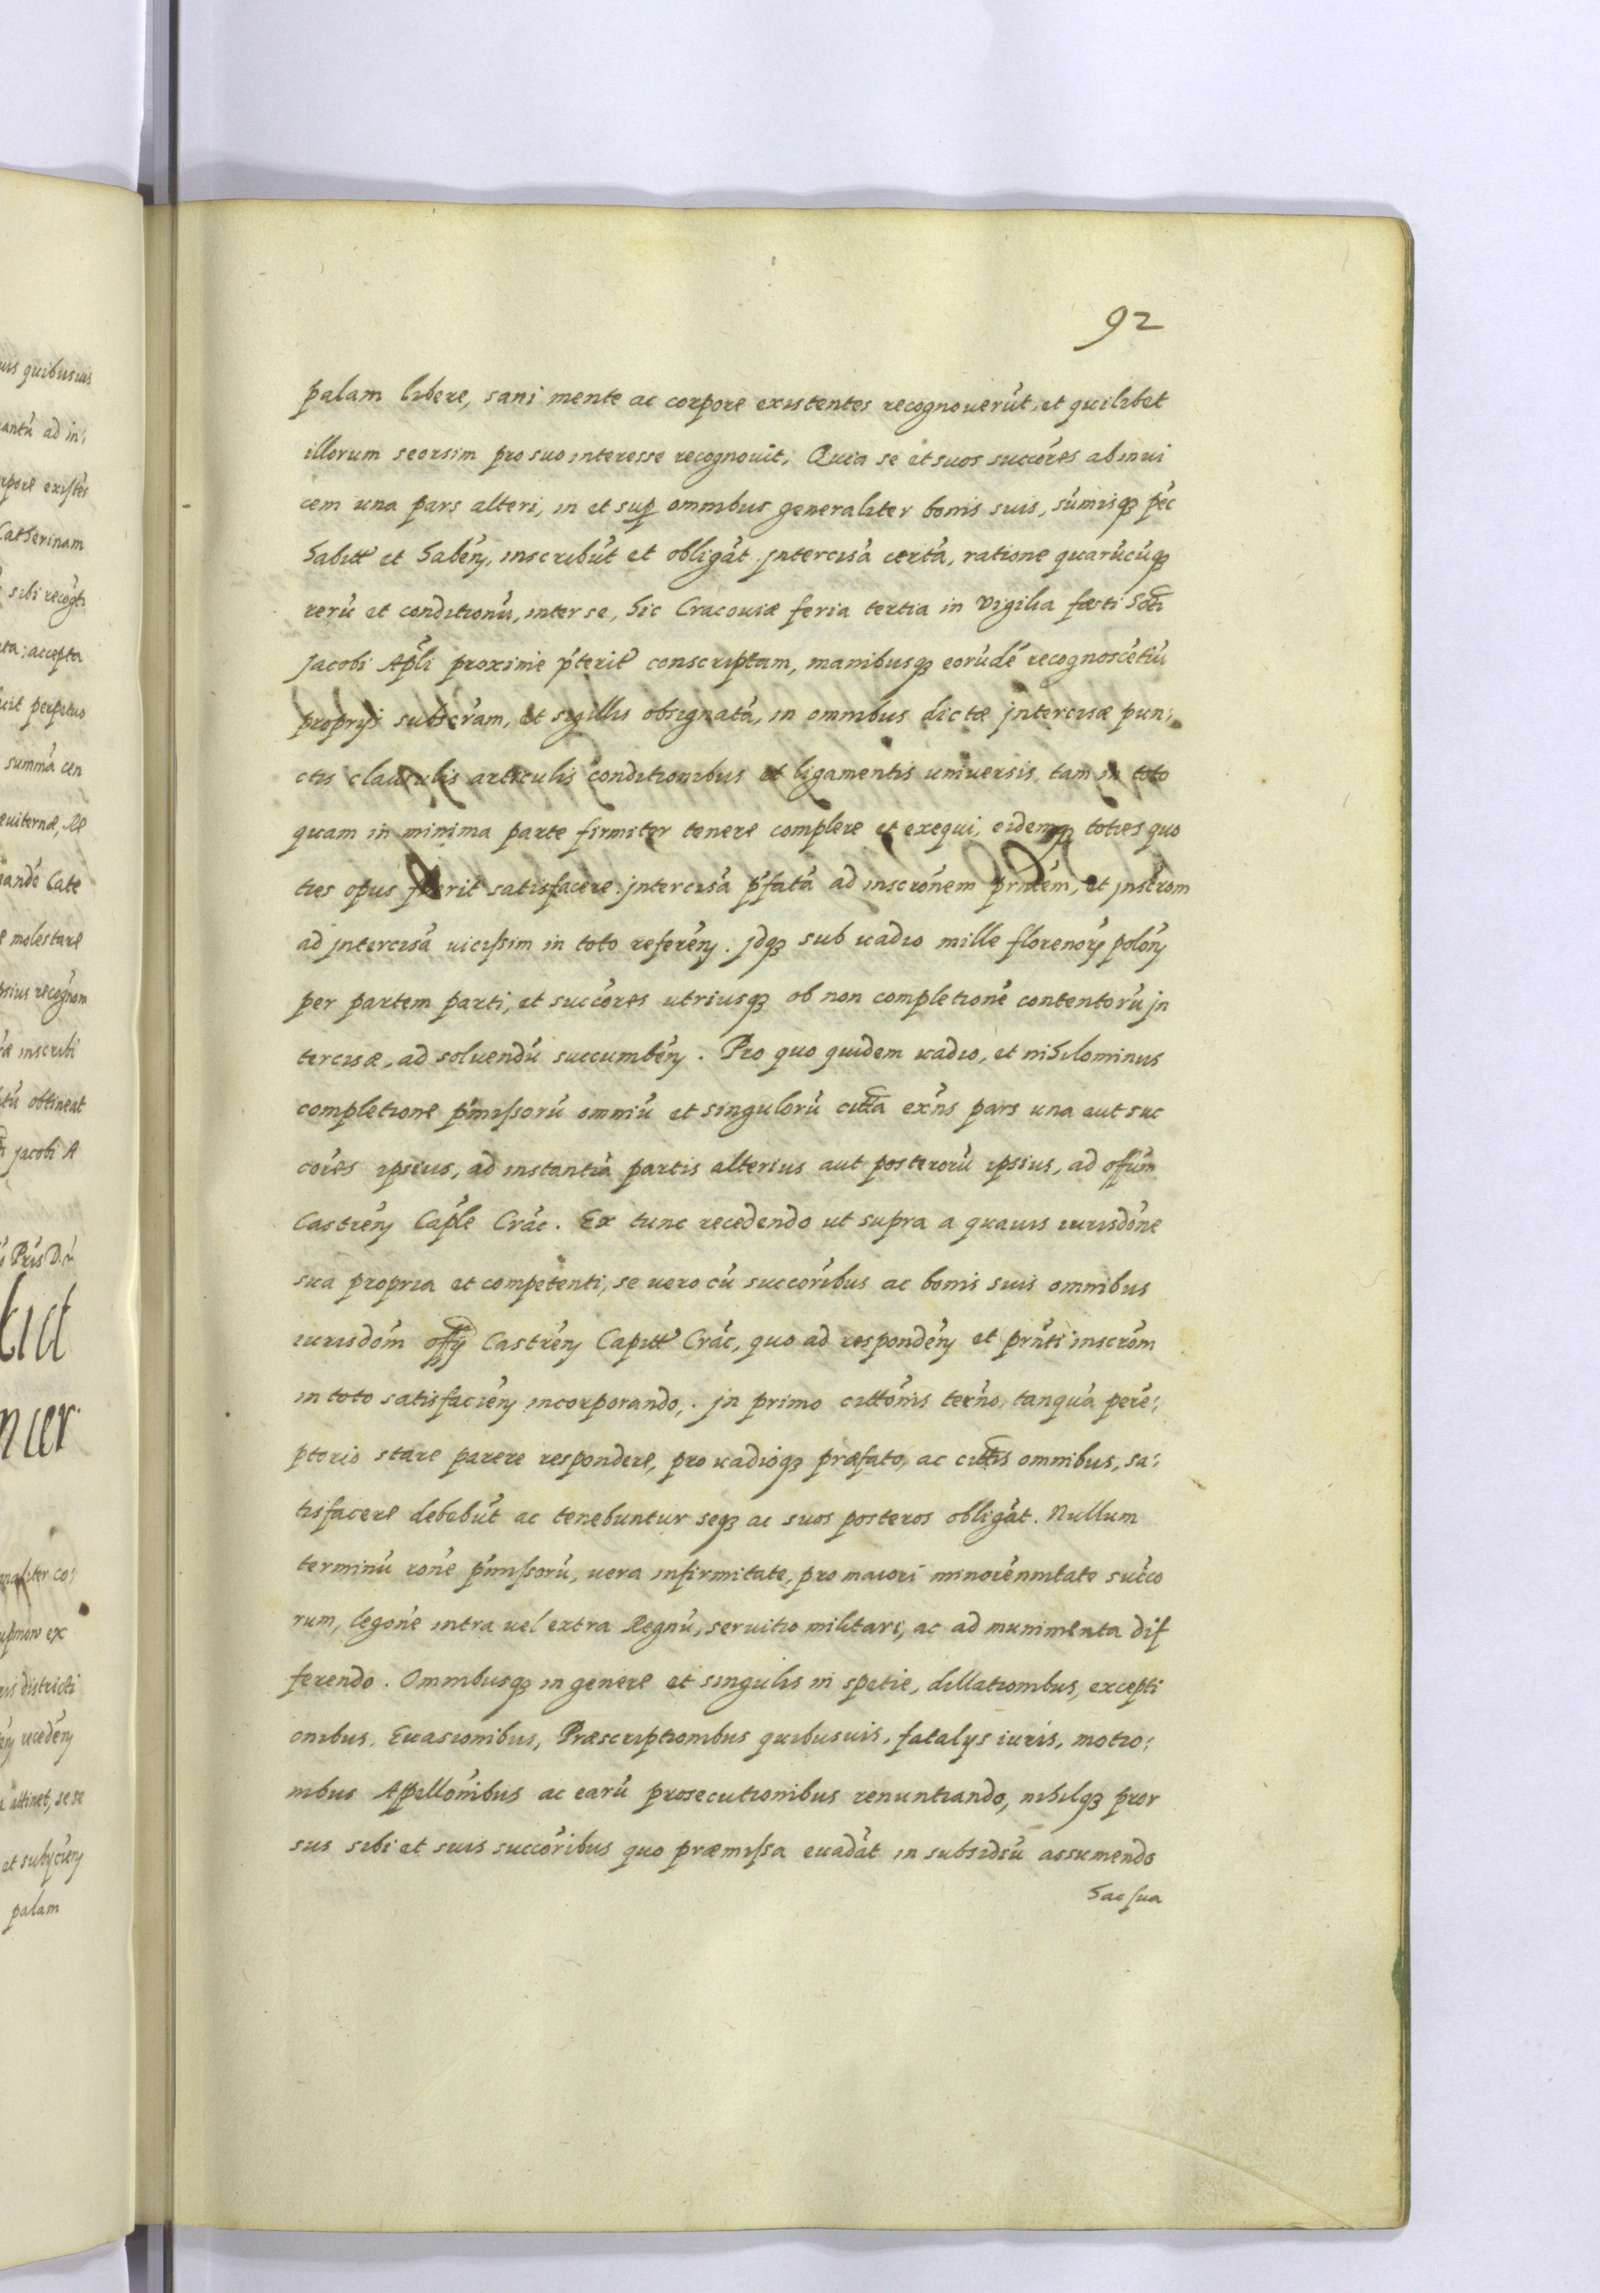 92
palam libere, sani mente ac corpore existentes recognouerūt, et quilibet
illorum seorsim pro suo interesse recognouit, Quia se et suos succōres ab inui
cem una pars alteri, in et sup omnibus generaliter bonis suis, sūmisq₃ pec̄
habitt et habēn, inscribūt et obligāt. jntercisā certā, ratione quarūcūq₃
rerū et conditionū, inter se, hic Cracouiæ feria tertia in vigilia fæsti Scti
Jacobi Apl̄i proxime p̄terit conscriptam, manibusq₃ eorūdē recognoscētiū
proprijs subscr̄am, et sigillis obsignatā, in omnibus dictæ jntercisæ pun:
ctis clausulis articulis conditionibus et ligamentis universis tam in toto
quam in minima parte firmiter tenere complere et exequi, eidemq₃ toties quo
ties opus fuerit satisfacere. jntercisā p̄fatā ad inscrōnem prn̄tem, et jnscrōm
ad jntercisā uicissim in toto referēn. jdq₃ sub uadio mille florenorȳ polōn
per partem parti, et succōres utriusq₃ ob non completionē contentorū jn
tercisæ, ad soluendū succumbēn. Pro quo quidem uadio, et nihilominus
completione p̄missorū omniū et singulorū citta exn̄s pars una aut suc
cōres ipsius, ad instantiā partis alterius aut posterorū ipsius, ad offūm
Castrēn Cap̄le Crāc. Ex tunc recedendo ut supra a quauis iurisdōne
sua propria et competenti, se uero cū succōribus ac bonis suis omnibus
iurisdōm offy Castrēn Capitt Crāc, quo ad respondēn et prn̄ti inscrōm
in toto satisfaciēn incorporando,. jn primo cittōnis tern̄o, tanquā perē:
ptorio stare parere respondere, pro uadioq₃ præfato, ac cittis omnibus, sa:
tisfacere debebūt ac tenebuntur seq₃ ac suos posteros obligāt. Nullum
terminū rōne p̄missorū, uera infirmitate, pro maiori minorēnnitate succo
rum, legōne intra uel extra Regnū, seruitio militari, ac ad munimenta dif
ferendo. Omnibusq₃ in genere et singulis in spetie, dillationibus, excepti
onibus, Euasionibus, Præscriptionibus quibusuis, fatalys iuris, motio:
nibus Appellōnibus ac earū prosecutionibus renuntiando, nihilq₃ pror
sus sibi et suis succōribus quo præmissa euadāt in subsidiū assumendo
hac sua